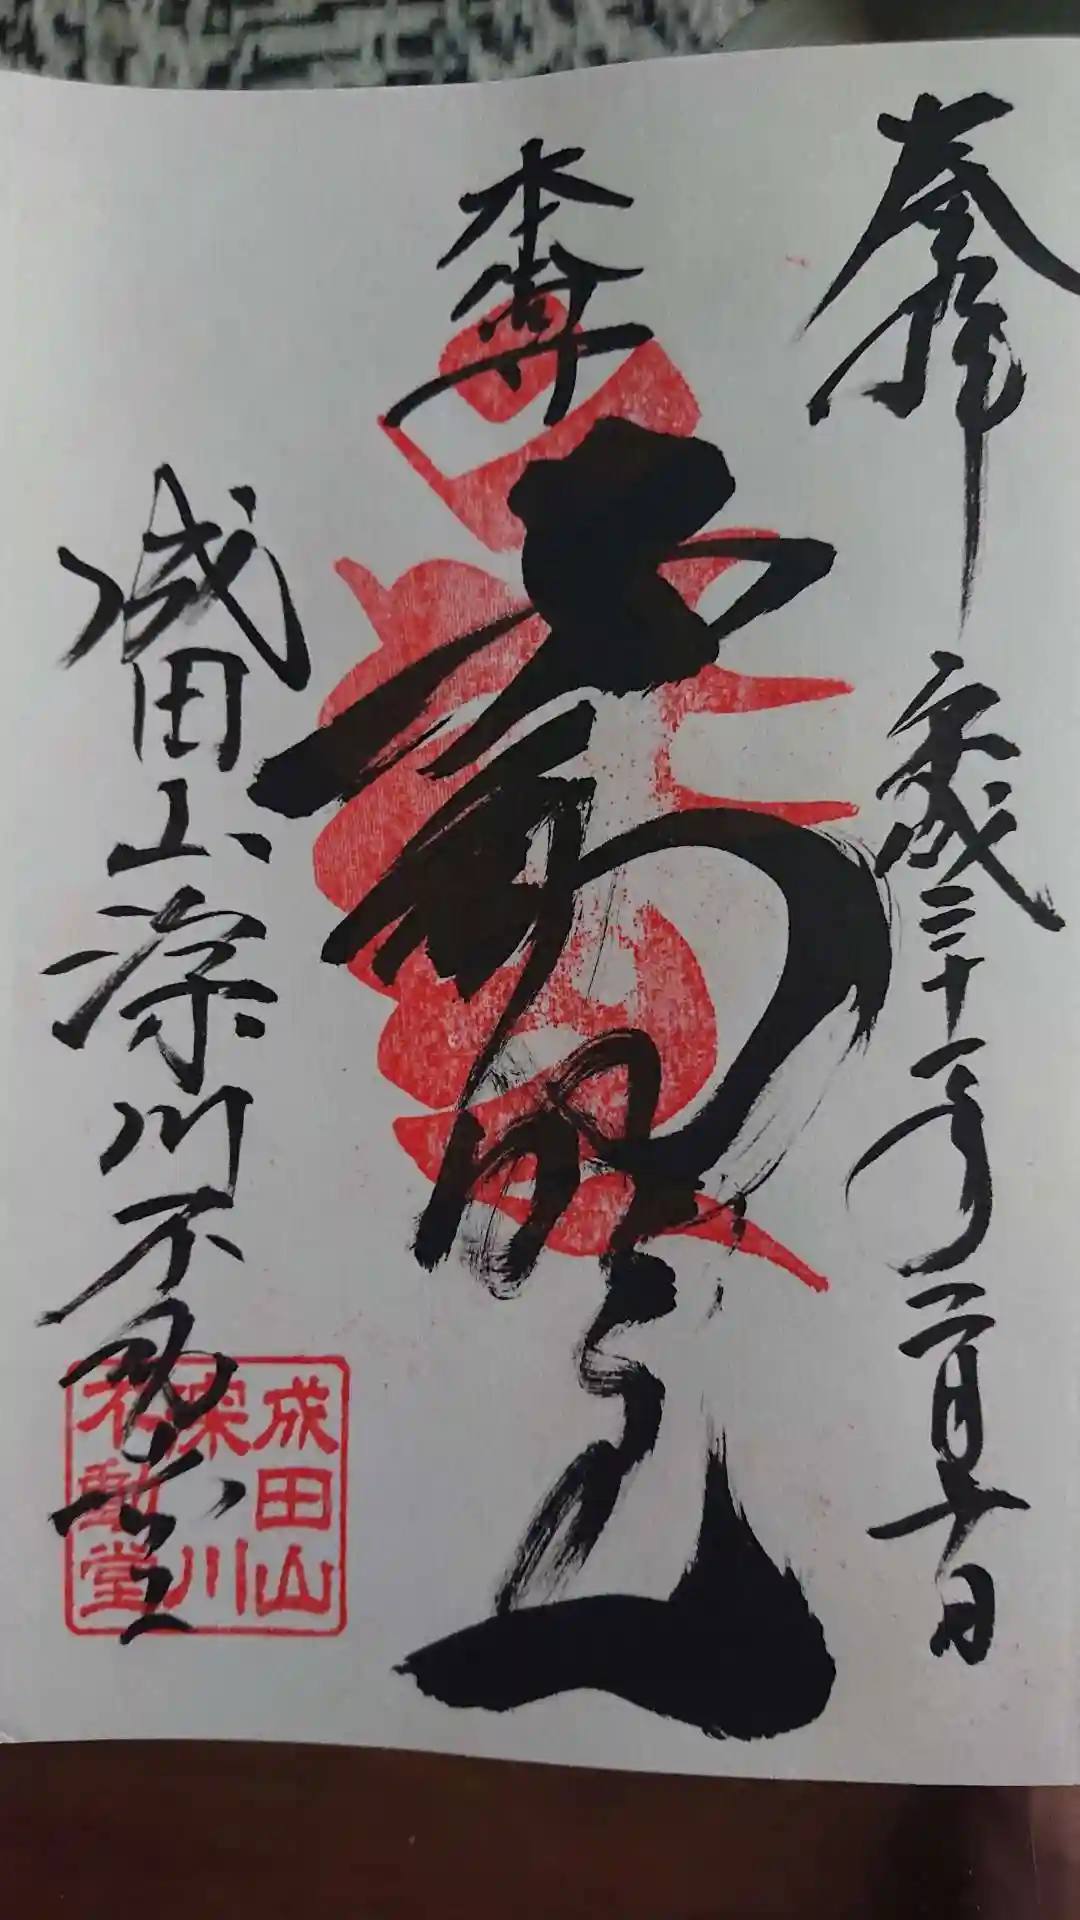 奉拝
平成三十一年二月十日
本尊
不動明王
成田山深川不動堂
成田山
深川
不動堂